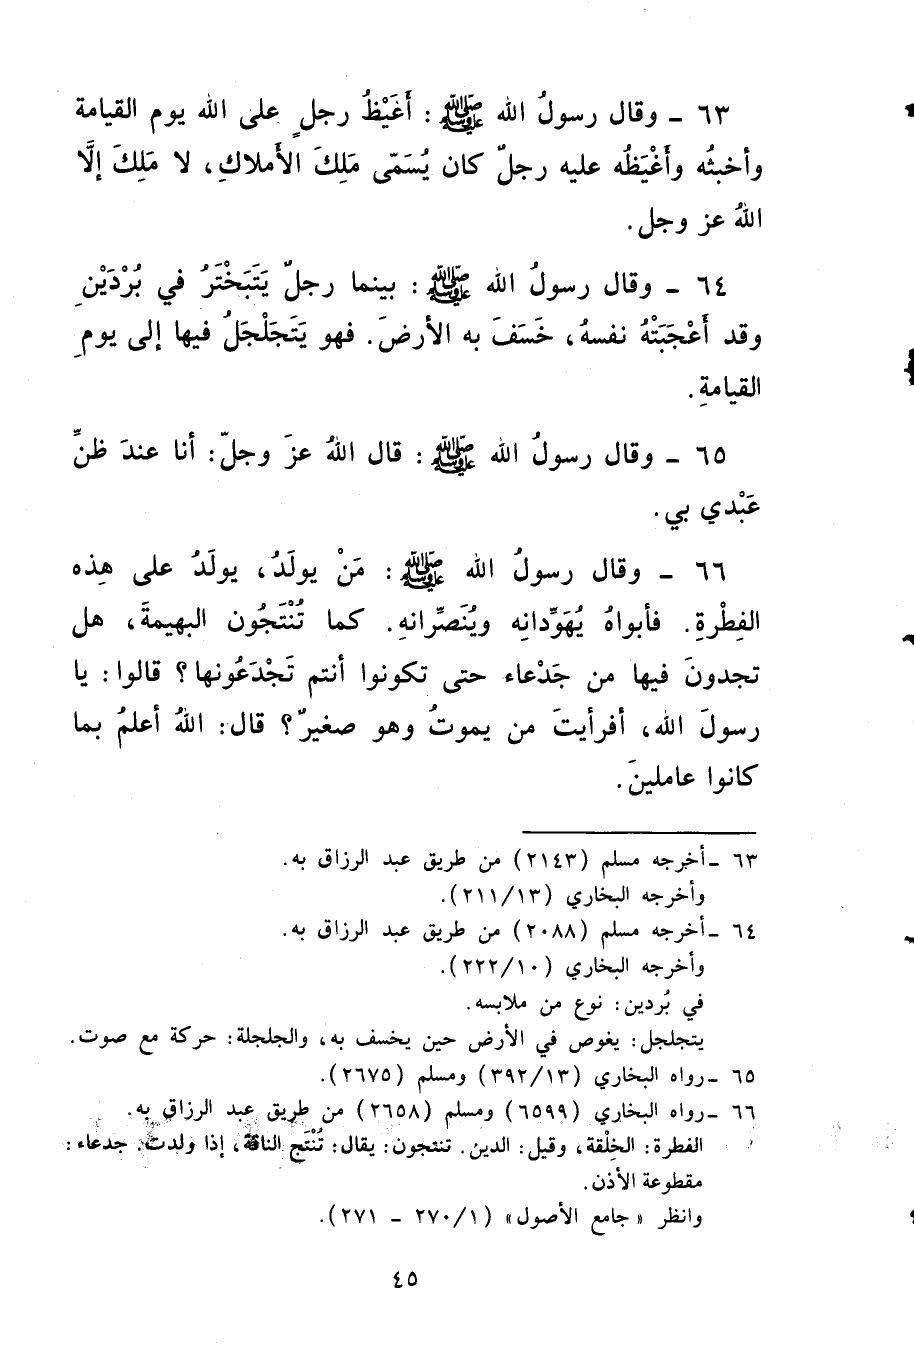 ٦٣ - وقال رسولُ الله ﷺ : أَغَيْظُ رجلٍ على الله يوم القيامة
وأخبثُه وأَغْيَظُه عليه رجلٌ كان يُسَمّى مَلِكَ الأَملاكِ، لا مَلِكَ إلَّا
اللهُ عز وجل.
٦٤ - وقال رسولُ الله ﷺ : بينما رجلٌ يَتَبَخْتَرُ في بُرْدَيْنِ
وقد أَعْجَبَتْهُ نفسهُ، خَسَفَ به الأرضَ. فهو يَتَجَلْجَلُ فيها إلى يومِ
القيامةِ.
٦٥ - وقال رسولُ الله ﷺ : قال اللهُ عزَ وجلّ: أنا عندَ ظنِّ
عَبْدي بي.
٦٦ - وقال رسولُ الله ﷺ : مَنْ يولَدُ، يولَدُ على هذِه
الفِطْرةِ. فأبواهُ يُهَوِّدانِه ويُنَصِّرانِهِ. كما تُنْتَجُون البهيمةَ، هل
تجدونَ فيها من جَدْعاء حتى تكونوا أنتم تَجْدَعُونها؟ قالوا: يا
رسولَ الله، أفرأيتَ من يموتُ وهو صغيرٌ؟ قال: اللهُ أعلمُ بما
كانوا عاملينَ.
٦٣ -أخرجه مسلم (٢١٤٣) من طريق عبد الرزاق به.
وأخرجه البخاري (٢١١/١٣).
٦٤ -أخرجه مسلم (٢٠٨٨) من طريق عبد الرزاق به.
وأخرجه البخاري (٢٢٢/١٠).
في بُردين: نوع من ملابسه.
يتجلجل: يغوص في الأرض حين يخسف به، والجلجلة: حركة مع صوت.
٦٥ -رواه البخاري (٣٩٢/١٣) ومسلم (٢٦٧٥).
٦٦ -رواه البخاري (٦٥٩٩) ومسلم (٢٦٥٨) من طريق عبد الرزاق به.
الفطرة: الخِلْقة، وقيل: الدين. تنتجون: يقال: تُنْتَج الناقة، إذا ولدت. جدعاء:
مقطوعة الأذن.
وانظر «جامع الأصول» (٢٧٠/١ - ٢٧١).
٤٥